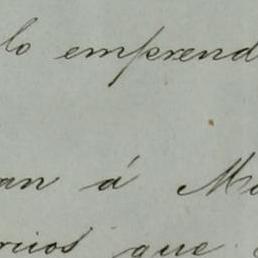 lo emprend
an á M
rios que